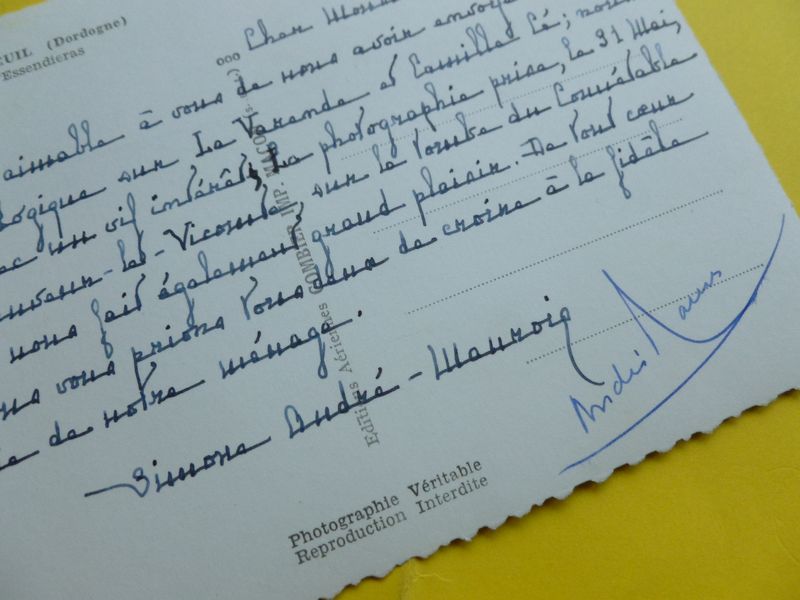 EUIL (Dordogne)
Essendieras
Cher
aimable à vous de nous avoir envoyé
logique sur La Varende et Camille Cé; nous
un vif intérêt. La photographie prise, le 31 Mai,
Sauveur-le-Vicomte, sur la tombe du Connétable
nous fait également grand plaisir. De tout cœur
nous vous prions tous deux de croire à la fidèle
de notre ménage.
Simone André-Maurois
André Maurois
Editions Aériennes COMBIER IMP. MACON
Photographie Véritable
Reproduction Interdite